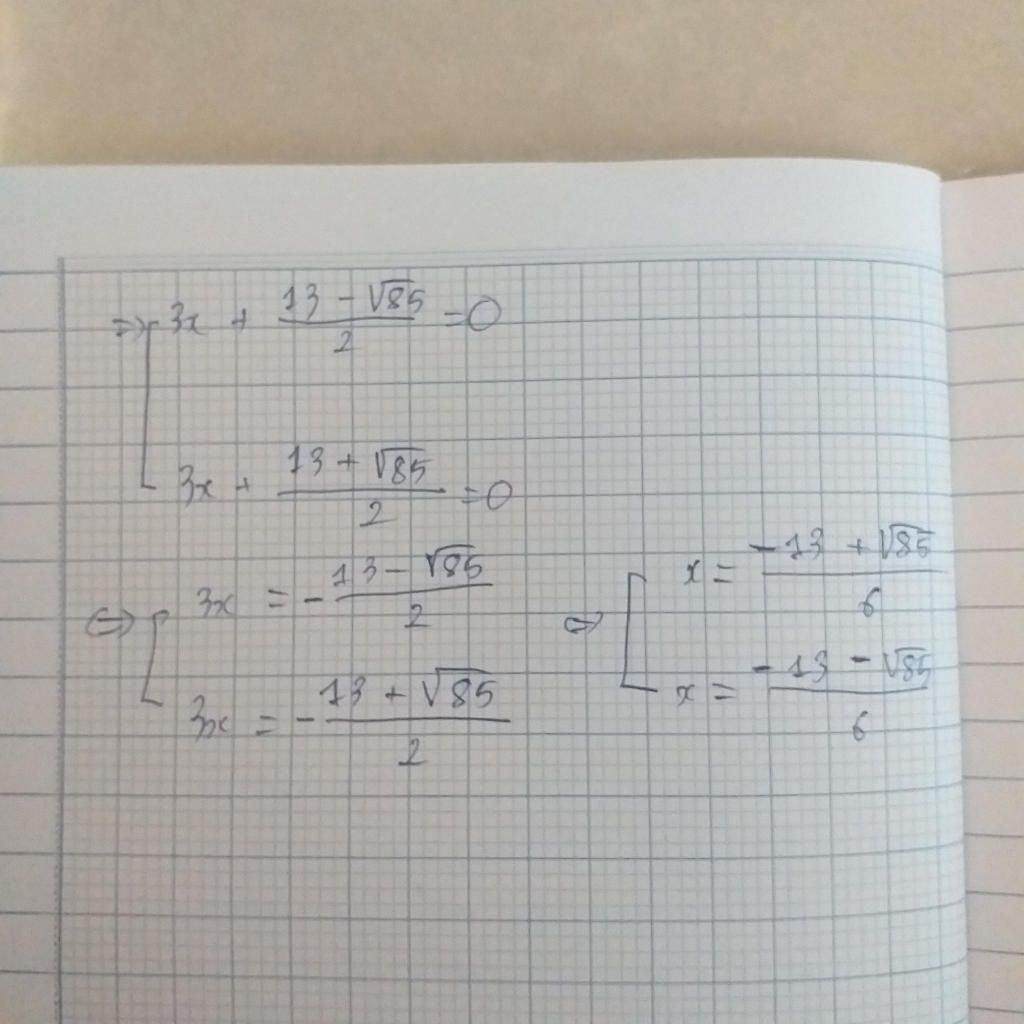 ⇒ [ 3x + (13 - √85)/2 = 0
3x + (13 + √85)/2 = 0
⇔ [ 3x = - (13 - √85)/2
3x = - (13 + √85)/2
⇔ [ x = (-13 + √85)/6
x = (-13 - √85)/6